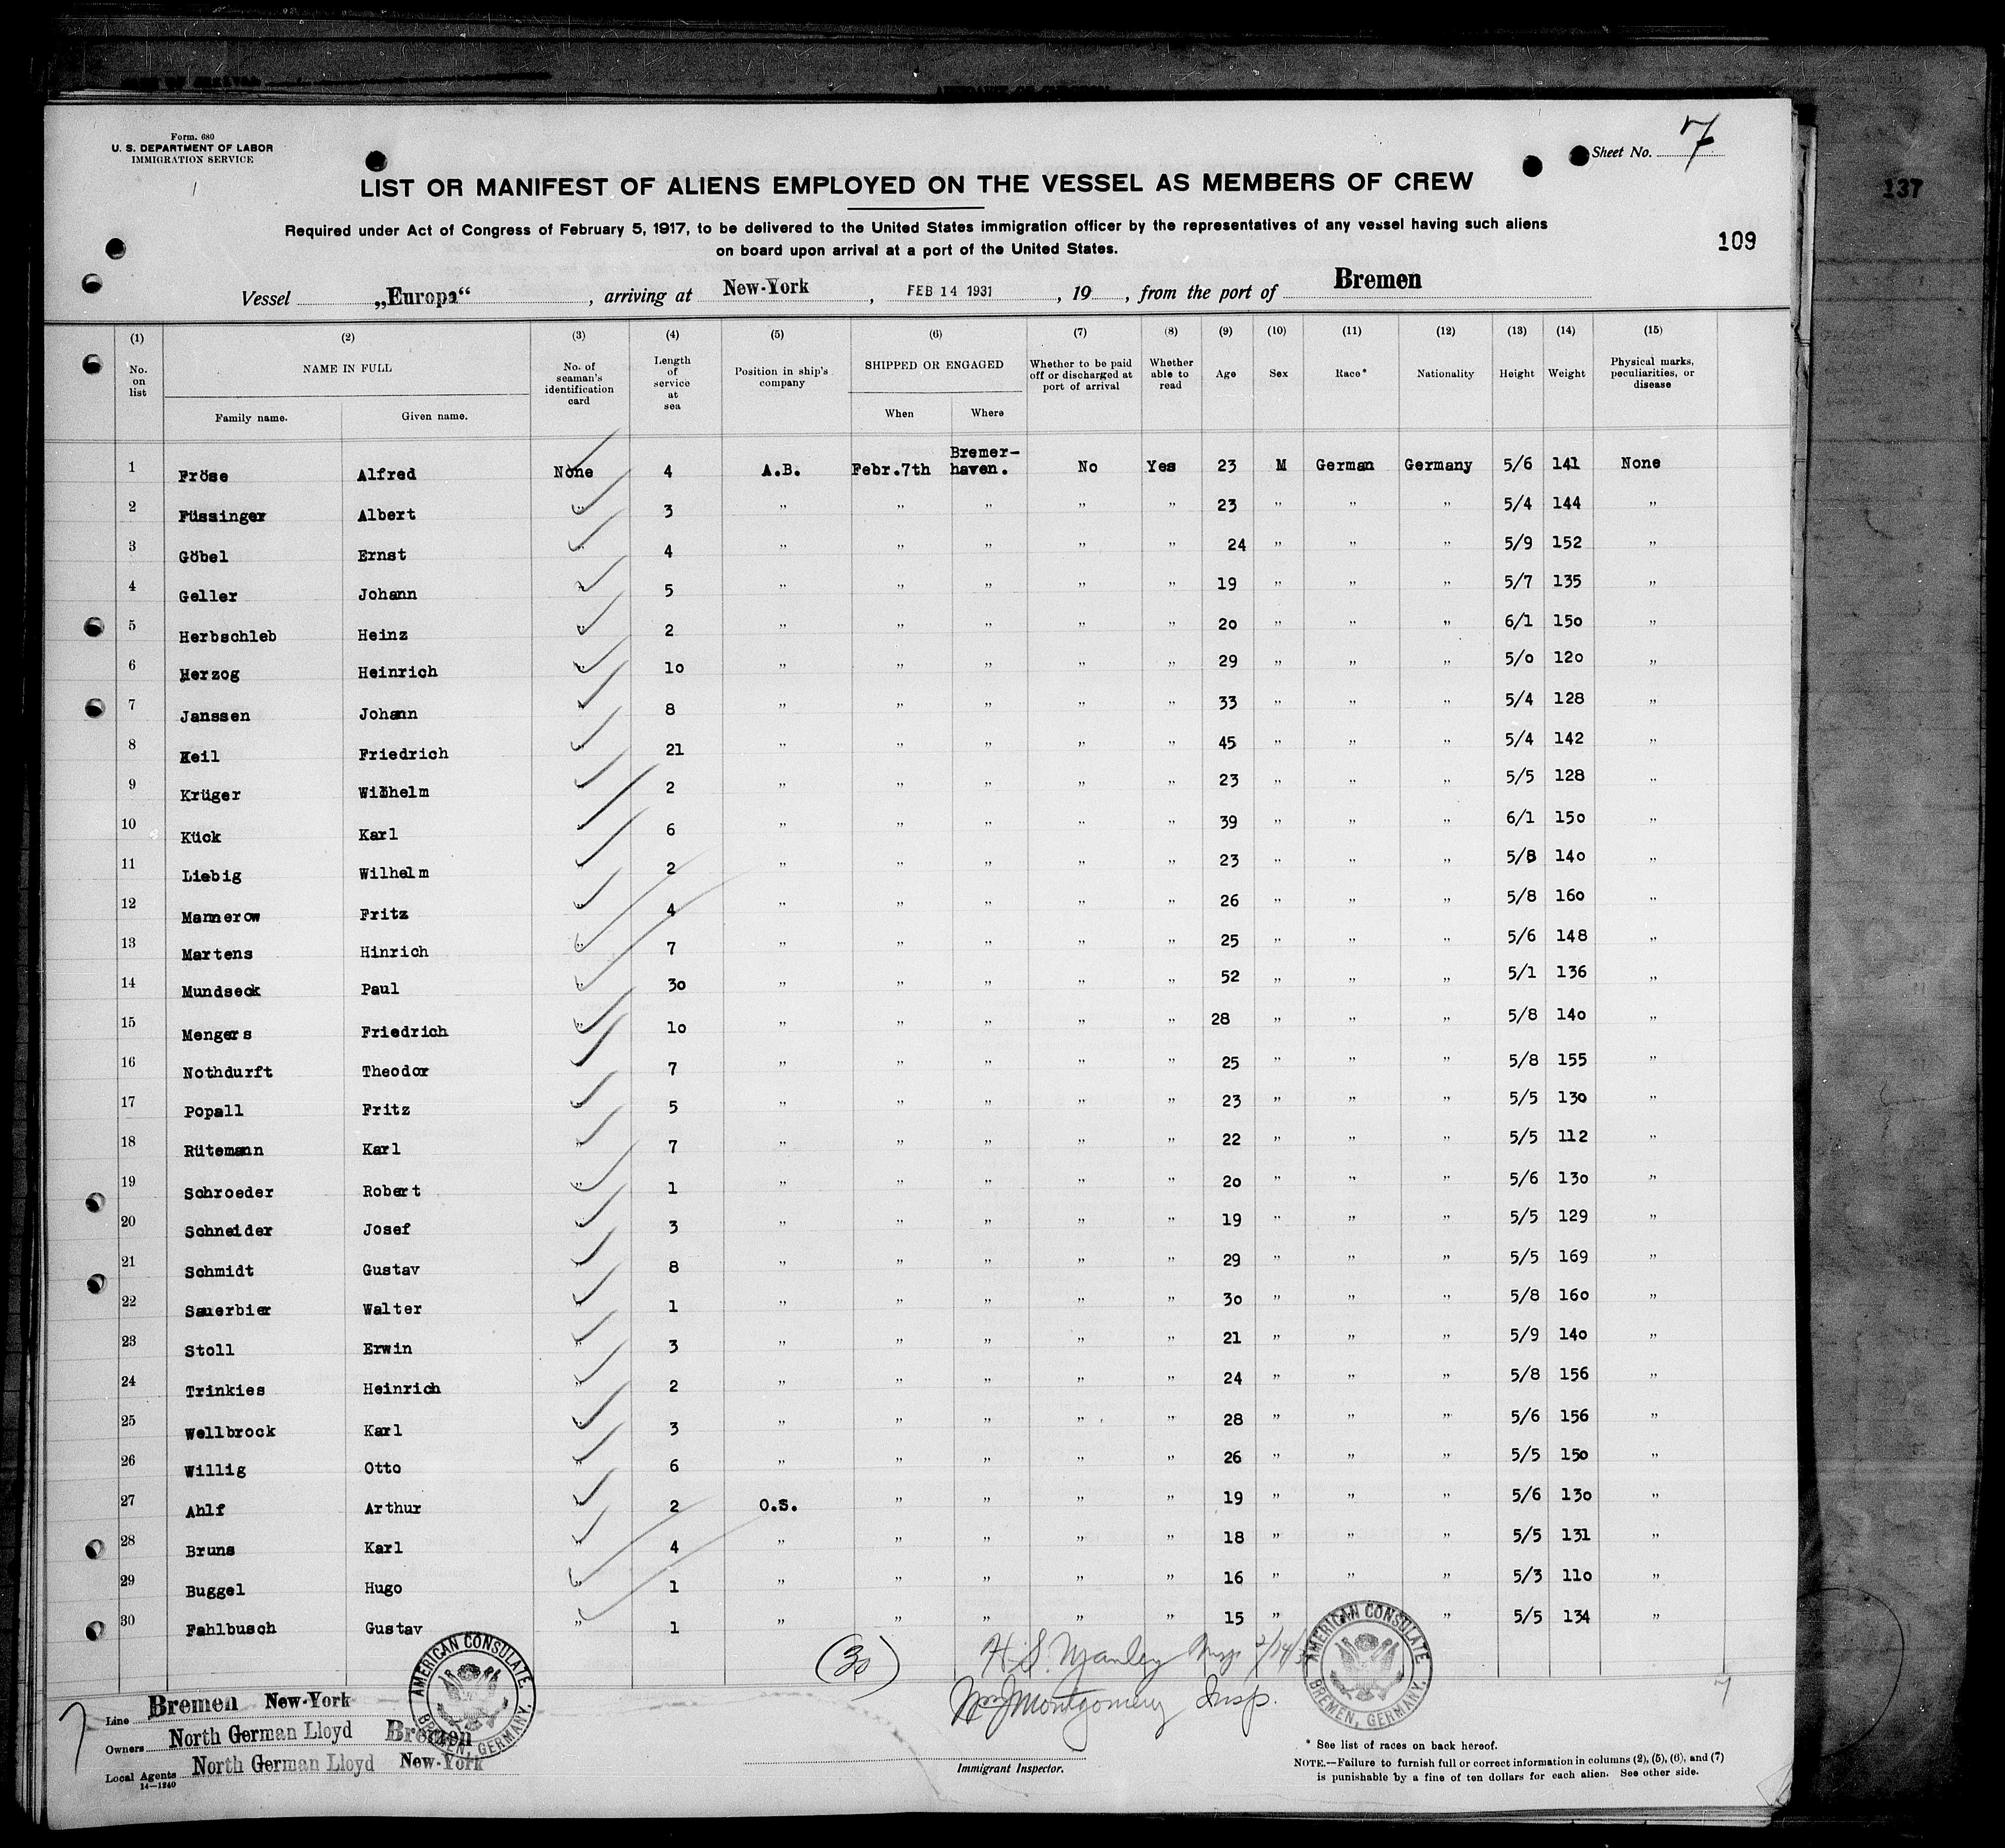 Form. 680
U. S. DEPARTMENT OF LABOR
IMMIGRATION SERVICE
Sheet No. 7
137
LIST OR MANIFEST OF ALIENS EMPLOYED ON THE VESSEL AS MEMBERS OF CREW
Required under Act of Congress of February 5, 1917, to be delivered to the United States immigration officer by the representatives of any vessel having such aliens
on board upon arrival at a port of the United States.
109
Vessel „Europa“, arriving at New-York, FEB 14 1931, 19, from the port of Bremen
(1) (2) (3) (4) (5) (6) (7) (8) (9) (10) (11) (12) (13) (14) (15)
No. on list NAME IN FULL Family name. Given name. No. of seaman's identification card Length of service at sea Position in ship's company SHIPPED OR ENGAGED When Where Whether to be paid off or discharged at port of arrival Whether able to read Age Sex Race* Nationality Height Weight Physical marks, peculiarities, or disease
1 Fröse Alfred None 4 A.B. Febr.7th Bremer-haven. No Yes 23 M German Germany 5/6 141 None
2 Füssinger Albert " 3 " " " " " 23 " " " 5/4 144 "
3 Göbel Ernst " 4 " " " " " 24 " " " 5/9 152 "
4 Geller Johann " 5 " " " " " 19 " " " 5/7 135 "
5 Herbschleb Heinz " 2 " " " " " 20 " " " 6/1 150 "
6 Herzog Heinrich " 10 " " " " " 29 " " " 5/0 120 "
7 Janssen Johann " 8 " " " " " 33 " " " 5/4 128 "
8 Keil Friedrich " 21 " " " " " 45 " " " 5/4 142 "
9 Krüger Wilhelm " 2 " " " " " 23 " " " 5/5 128 "
10 Kück Karl " 6 " " " " " 39 " " " 6/1 150 "
11 Liebig Wilhelm " 2 " " " " " 23 " " " 5/8 140 "
12 Mannerow Fritz " 4 " " " " " 26 " " " 5/8 160 "
13 Martens Hinrich " 7 " " " " " 25 " " " 5/6 148 "
14 Mundseck Paul " 30 " " " " " 52 " " " 5/1 136 "
15 Mengers Friedrich " 10 " " " " " 28 " " " 5/8 140 "
16 Nothdurft Theodor " 7 " " " " " 25 " " " 5/8 155 "
17 Popall Fritz " 5 " " " " " 23 " " " 5/5 130 "
18 Rütemann Karl " 7 " " " " " 22 " " " 5/5 112 "
19 Schroeder Robert " 1 " " " " " 20 " " " 5/6 130 "
20 Schneider Josef " 3 " " " " " 19 " " " 5/5 129 "
21 Schmidt Gustav " 8 " " " " " 29 " " " 5/5 169 "
22 Sauerbier Walter " 1 " " " " " 30 " " " 5/8 160 "
23 Stoll Erwin " 3 " " " " " 21 " " " 5/9 140 "
24 Trinkies Heinrich " 2 " " " " " 24 " " " 5/8 156 "
25 Wellbrock Karl " 3 " " " " " 28 " " " 5/6 156 "
26 Willig Otto " 6 " " " " " 26 " " " 5/5 150 "
27 Ahlf Arthur " 2 O.S. " " " " 19 " " " 5/6 130 "
28 Bruns Karl " 4 " " " " " 18 " " " 5/5 131 "
29 Buggel Hugo " 1 " " " " " 16 " " " 5/3 110 "
30 Fahlbusch Gustav " 1 " " " " " 15 " " 5/5 134 "
(30) H.S. Manley Insp. 2/14/31
Wm J Montgomery Insp.
AMERICAN CONSULATE. BREMEN, GERMANY.
AMERICAN CONSULATE BREMEN, GERMANY.
7
Line Bremen New-York
Owners North German Lloyd Bremen
Local Agents North German Lloyd New-York
14—1240
Immigrant Inspector.
* See list of races on back hereof.
NOTE.—Failure to furnish full or correct information in columns (2), (5), (6), and (7)
is punishable by a fine of ten dollars for each alien. See other side.
7